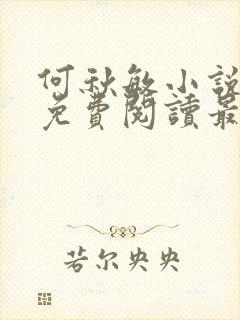 何秋敏小說
免費閱讀最
若尔央央